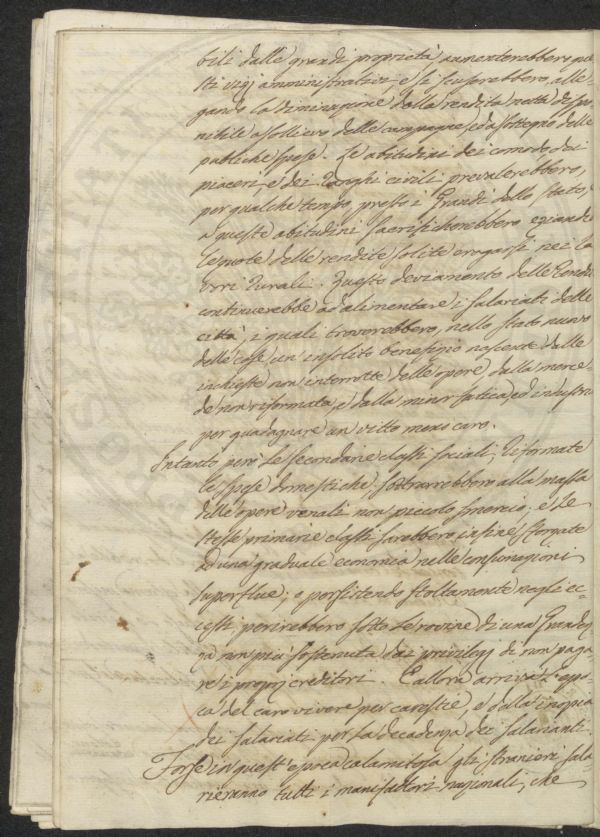 bili dalle grandi proprietà aumenterebbero
sti vizj amministrativi, e si scuserebbero, alle-
gando la diminuzione della rendita netta dispo-
nibile a sollievo delle campagne, ed a sostegno delle
publiche spese. Le abitudini dei comodi, dei
piaceri, e dei ranghi civili prevalerebbero,
per qualche tempo presso i Grandi dello Stato;
a queste abitudini sacrificherebbero eziandio
le quote delle rendite solite erogarsi nei la-
vori rurali. Questo deviamento delle rendite
continuerebbe ad alimentare i salariati delle
città, i quali troverebbero, nello stato nuovo
delle cose un insolito benefizio nascente dalle
inchieste non interrotte delle opere, dalla merce-
de non riformata, e dalla minor fatica, ed industria
per guadagnare un vitto meno caro.
Intanto però le secondarie classi sociali, riformate
le spese domestiche sottrarrebbero alla massa
delle opere venali non piccolo smercio; e le
stesse primarie classi sarebbero infine sforzate
ad una graduale economia nelle consumazioni
superflue; o persistendo stoltamente negli ec-
cessi perirebbero sotto le rovine di una grandez-
za non più sostenuta dai privilegj di non paga-
re i proprj creditori. E allora arriva l'epo-
ca del caro vivere per carestie, e dalla inopia
dei salariati per la decadenza dei salarianti.
Forse in quest'epoca calamitosa gli stranieri sala-
rieranno tutti i manifattori nazionali, che